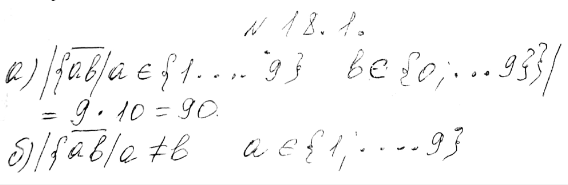 N 18.1.
а) |{ab̅ | a ∈ {1.....9} b ∈ {0;...9}}|
= 9 · 10 = 90.
б) |{ab̅ | a ≠ b a ∈ {1;.....9}